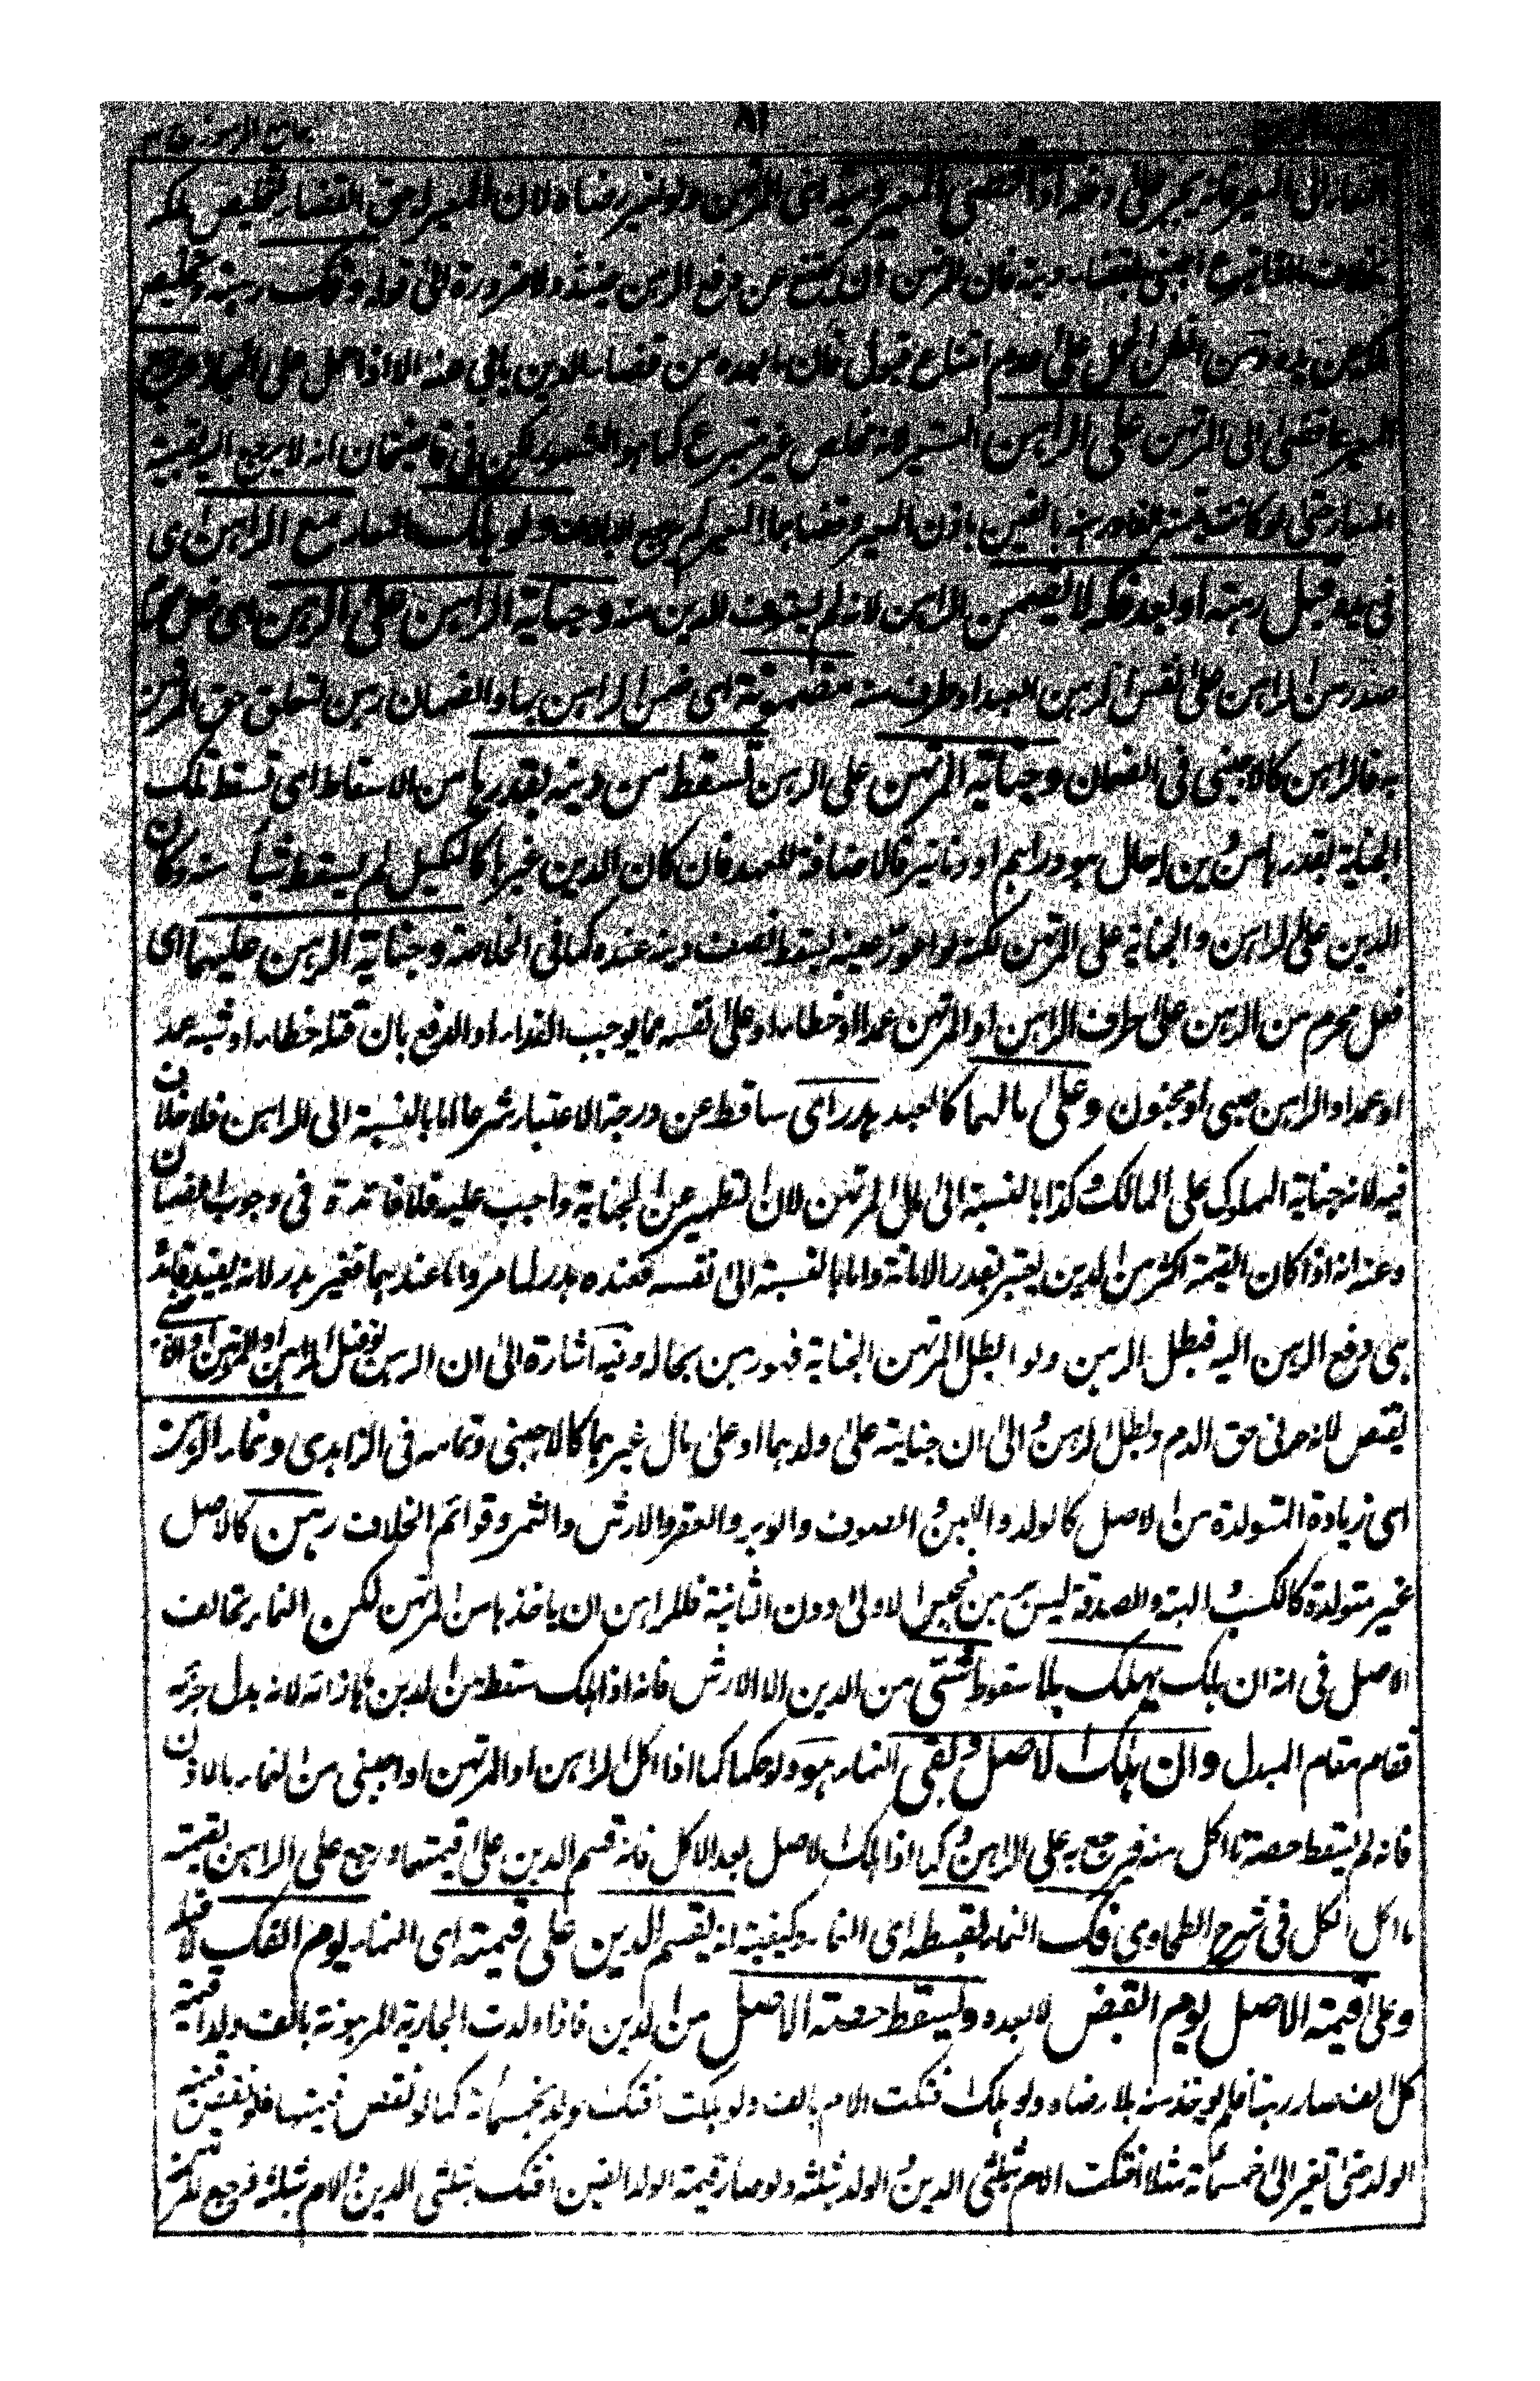 جامع الرموز
٨١
المعير ولو بغير رضاه لان للمعير حق القضاء لتخليص ملكه
بخلاف اجنبي بقضاء دينه فان للمرتهن ان يمتنع من دفع الرهن حينئذ ولا ضرورة الى قوله وفك رهنه وتخليص
على عدم امتناع قبول
المعير بما قضى الى المرتهن على الراهن المستعير لانه مخلص غير متبرع كما هو المشهور لكن في قاضيخان انه لا يرجع الا بقيمة
المستعار حتى لو كانت قيمته الفا ورهنه بالفين باذن المعير وقضاهما المعير لم يرجع الا بالالف ولو هلك المعار مع الراهن اى
فى يده قبل رهنه او بعد فكه لا يضمن الراهن لانه لم يستوف الدين منه وجناية الراهن على الرهن اى فعل محرم
صدر من الراهن على نفس الرهن العبد او طرف منه مضمونة اى ضمن الراهن بها والضمان رهن لتعلق حق المرتهن
به فالراهن كالاجنبى فى الضمان وجناية المرتهن على الرهن تسقط من دينه بقدرها من الاسقاط اى تسقط تلك
الجناية بقدرها من دين حال هو دراهم او دنانير فالاضافة للعهد فان كان الدين غيرها كالمكيل لم يسقط شيأ منه وكان
الدين على الراهن والجناية على المرتهن لكنه لو اعور عينه يسقط نصف دينه عنده كما فى الخلاصة وجناية الرهن عليهما اى
فعل محرم من الرهن على طرف الراهن او المرتهن عمدا او خطاء او على نفسه مما يوجب الفداء او الدفع بان قتله خطاء او شبه عمد
او عمدا والراهن صبى او مجنون وعلى مالهما كالعبد هدر اى ساقط عن درجة الاعتبار شرعا اما بالنسبة الى الراهن فلا خلاف
فيه لانه جناية المملوك على المالك وكذا بالنسبة الى مال المرتهن لان التطهير عن الجناية واجب عليه فلا فائدة فى وجوب الضمان
وعنه انه اذا كان القيمة اكثر من الدين يعتبر بقدر الامانة واما بالنسبة الى نفسه فعنده هدر لما مر واما عندهما فغير هدر لانه يفيد فائدة
هى دفع الرهن اليه فبطل الرهن ولو ابطل المرتهن الجناية فهو رهن بحاله وفيه اشارة الى ان الرهن لو قتل الراهن او المرتهن او الاجنبى
يقتص لانه حر فى حق الدم وبطل الرهن والى ان جنايته على ولدهما او على مال غيرهما كالاجنبى وتمامه فى الزاهدى ونماء الرهن
اى زيادة المتولدة من الاصل كالولد واللبن والصوف والوبر والعقر والارش والثمر وقوائم الخلاف رهن كالاصل
غير متولدة كالكسب والهبة والصدقة ليس برهن فيحبس الاولى دون الثانية فللراهن ان ياخذها من المرتهن لكن النماء يخالف
الاصل فى انه ان هلك يهلك بلا سقوط شئى من الدين الا الارش فانه اذا هلك سقط من الدين بازائه لانه بدل جزئه
فقام مقام المبدل وان هلك الاصل وبقى النماء هو ولو حكما كما اذا اكل الراهن او المرتهن او اجنبى من النماء بالاذن
فانه لم يسقط حصة ما اكل منه فيرجع به على الراهن وكما اذا هلك الاصل بعد الاكل فانه قسم الدين على قيمتهما ورجع على الراهن بقيمة
ما اكل الكل فى شرح الطحاوى فك النماء بقسطه اى النماء وكيفيته انه يقسم الدين على قيمته اى النماء يوم الفك لا قبله
وعلى قيمة الاصل يوم القبض لا بعده ويسقط حصة الاصل من الدين فاذا ولدت الجارية المرهونة بالف ولدا قيمة
كل الف صار رهنا فلم يوخذ منه بلا رضاه ولو هلك افتكت الام بالف ولو هلكت افتك الولد بخمسمائة كما لو نقص قيمتها فلو نقص قيمة
الولد حتى تغير الى خمسمائة مثلا افتكت الام بثلثى الدين والولد بثلثه ولو صار قيمة الولد الفين افتك بثلثى الدين والام بثلثه فرجع المرتهن